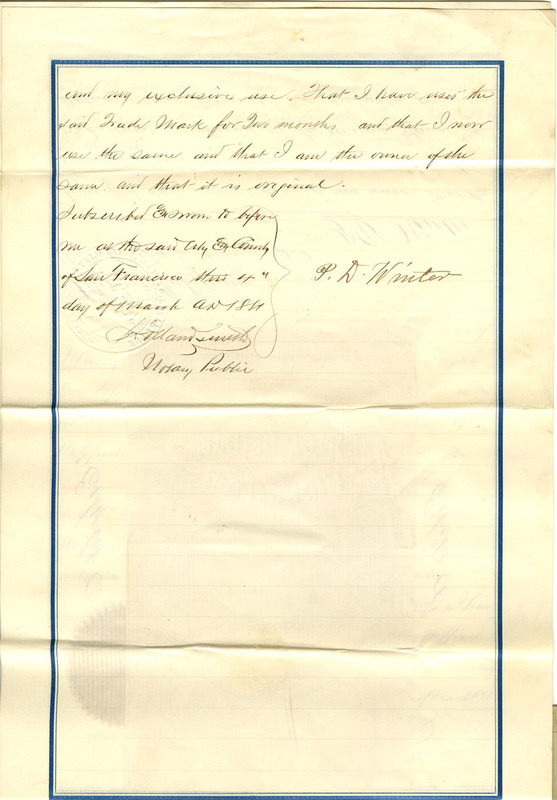 and my exclusive use. That I have used the
said Trade Mark for Two months and that I now
use the same and that I am the owner of the
same and that it is original.
Subscribed & sworn to before
me at the said City & County
of San Francisco this 4"
day of March AD 18
P. D. Winter
Holland Smith
Notary Public